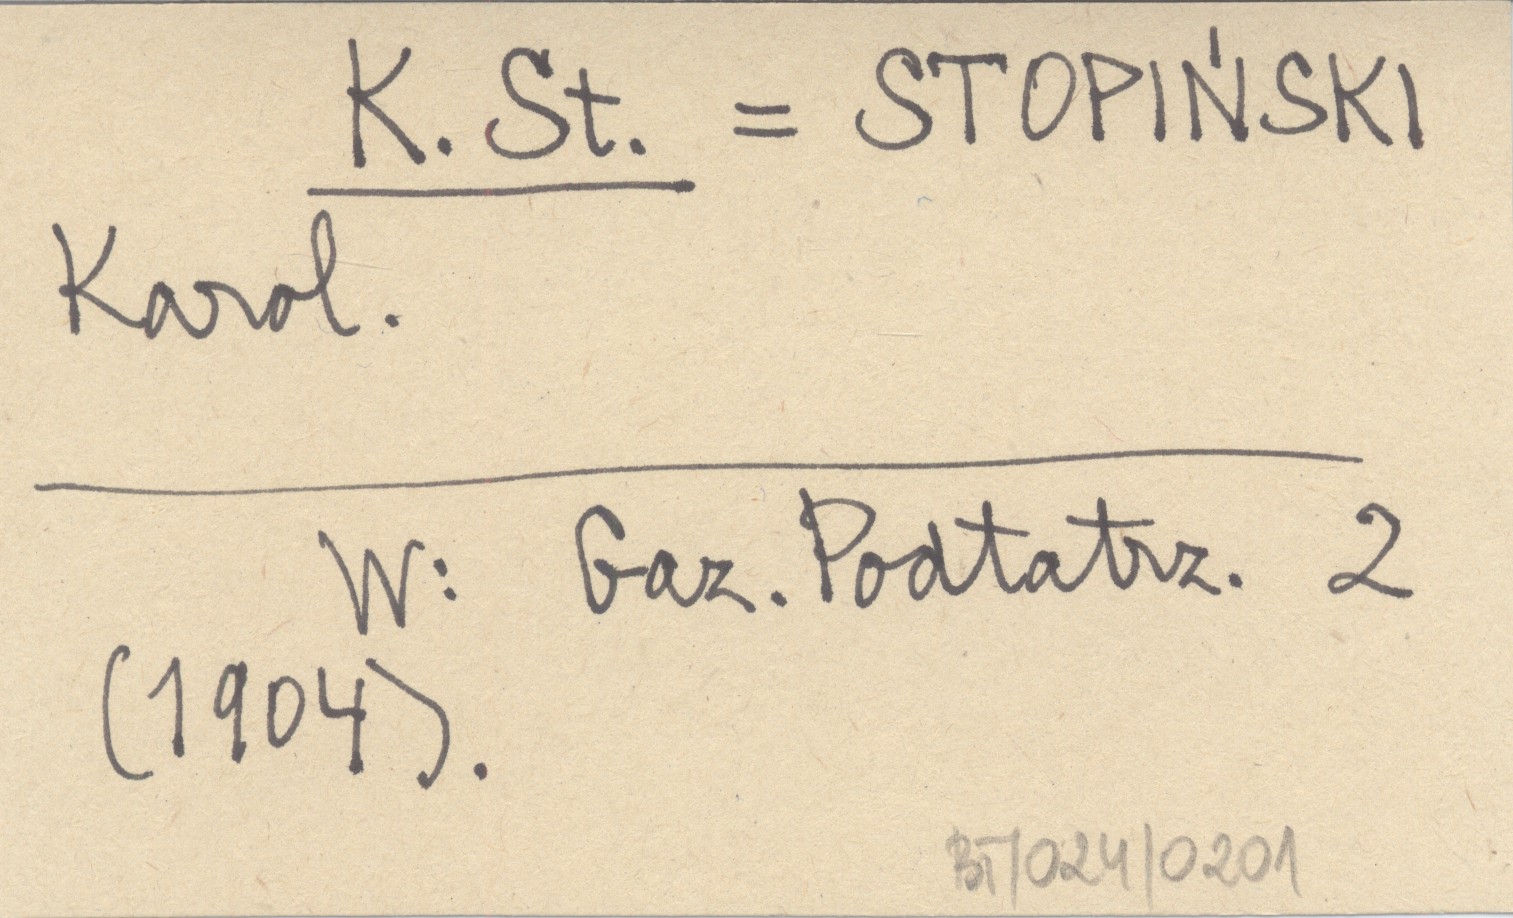 K. St. = STOPIŃSKI
Karol.
W: Gaz. Podtatrz. 2
(1904).
BT/024/0201